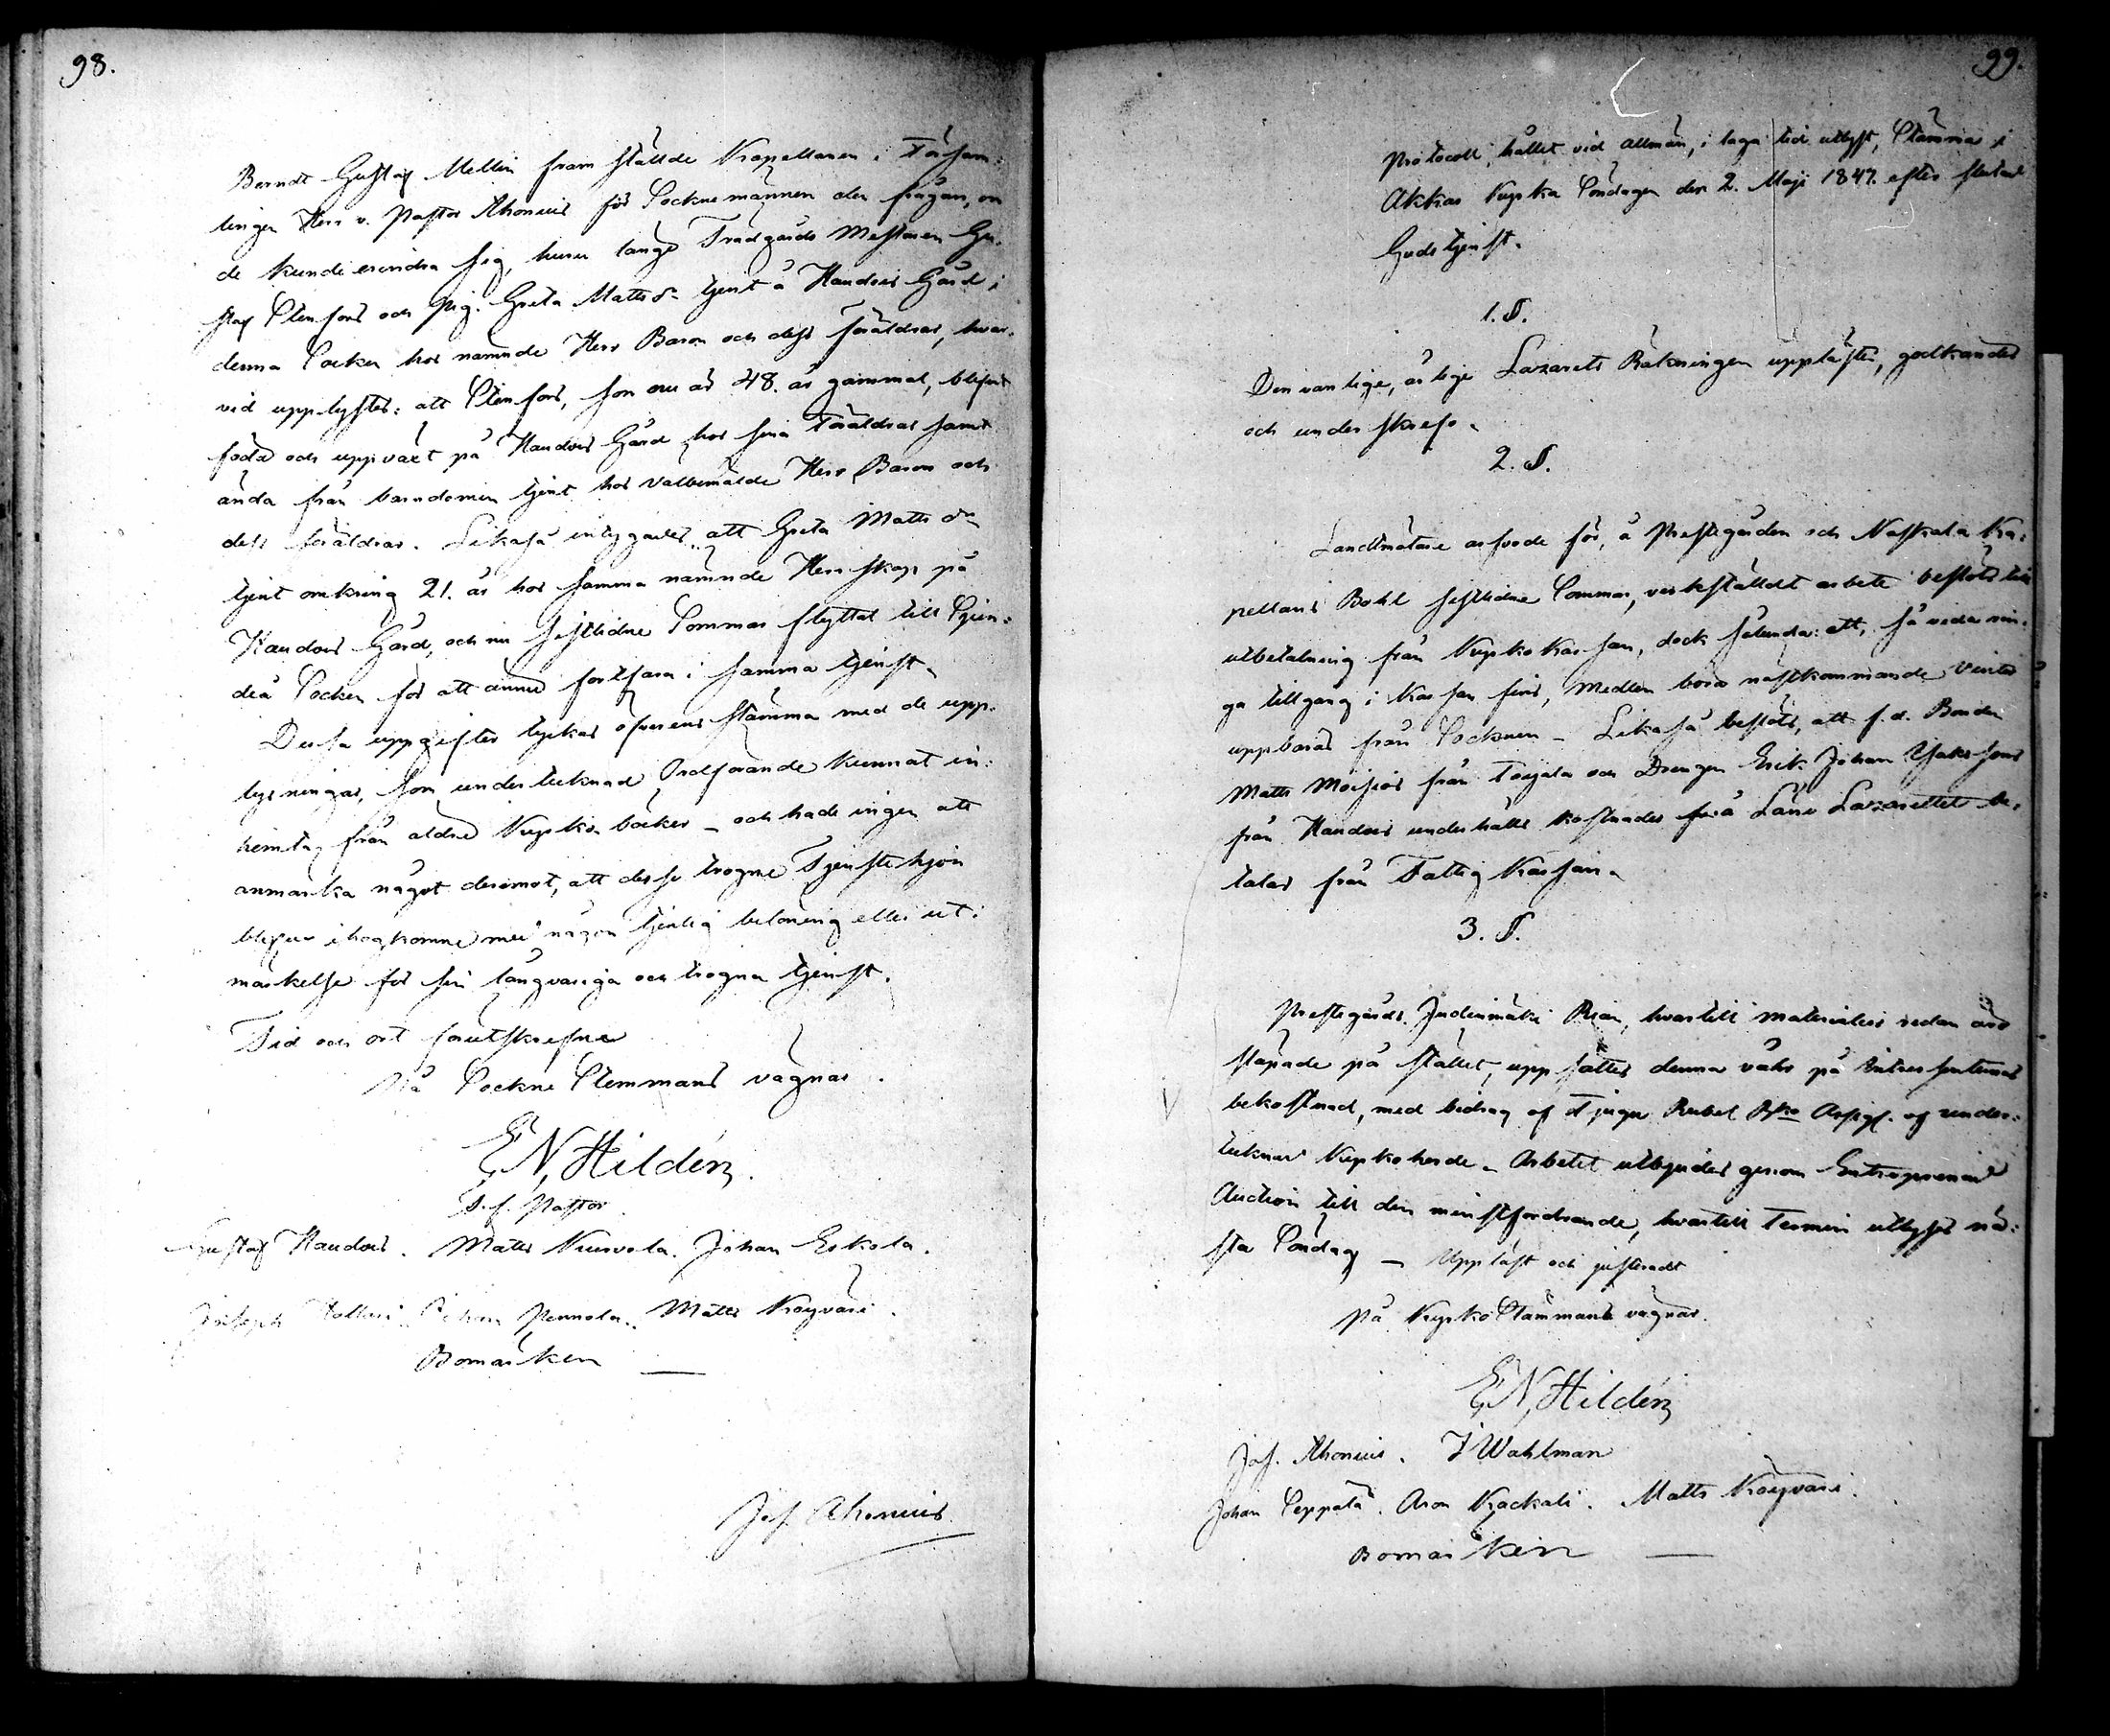 98.
Berndt Gustaf Mellin fram ställde Kapellanen i Församlingen
lingen Herr v. Pastor Ahonius för Sockne männen den frågan, om
de kunde erendra sig, huru länge Trädgårds Mestaren Gu-
staf Stenfors och Pig. Greta Matts dr tjent å Handois Gård i
denna Socken hos nämnde Herr Baron och dess föräldrar, hvar-
vid upplystes: att Stenfors, som nu är 48. år gammal, blifvit
född och uppväxt på Handois Gård hos sina Föräldrar samt
ända från barndomen tjent hos välbemälde Herr Baron och
dess föräldrar. Likaså intygades att Greta Matts dr
tjent omkring 21. år hos samma nämnde Herrskap på
Handois Gård, och nu sistledne Sommar flyttat till Tjen-
deå Socken för att ännu fortfara i samma tjenst.
Dessa uppgifter tyckas öfverens stämma med de upp-
lysningar, som undertecknad Ordförande kunnat in-
hemta från äldre Kyrko böcker – och hade ingen att
anmärka något deremot, att desse trogne Tjenstehjon
blefvo ihogkomne med någon tjenlig belöning eller ut-
märkelse för sin långvariga och trogna tjenst.
Tid och ort förutskrefne
På Sockne Stemmans vägnar.
E N Hildén.
T.f. Pastor
Gustaf Handois. Matts Kusvola. Johan Eskola.
Joseph Johan Pennola. Matts Köyväri.
Bomärken —
Jos. Ahonius
99.
Protocoll, hållet vid allmän, i laga tid utlyst, Stämma i
Akkas Kyrka Söndagen den 2. Maji 1847. efter slutad
Gudstjenst.
1. §.
Den vanlige, årlige Lazarets Räkningen upplästes, godkändes
och underskrefs.
2. §.
Landtmätare arfvode för, å Prestegården och Naskala Ka-
pellans Bohl sistledne Sommar, verkstäldt arbete beslöts till
utbetalning från Kyrko Kassan, dock sålunda: att, så vida nin-
ga tillgång i Kassan fins, medlen böra nästkommande Vinter
uppbäras från Socknen – Likaså beslöts, att f.d. Bonden
Matts Moisios från Toijala och Drengen Erik Johan Isaks sons
från Handois underhålls kostnader på Läne Lazarettet be-
talas från Fattig Kassan.
3. §.
Prestegårds Judinmäki Rian, hvartill materialier redan äro
släpade på stället, uppsättes denna vår på Intressenternas
bekostnad, med bidrag af Tjugu Rubel Rko Assign. af under-
tecknad Kyrkoherde – Arbetet utbjudes genom Entreprenad
Auction till den minstfordrande, hvartill Termin utlyses nä-
sta Söndag – Uppläst och justeradt
På Kyrko Stämmans vägnar.
E N Hildén
Jos. Ahonius. J Wahlman
Johan Seppälä. Aron Kackali. Matts Köyväri.
Bomärken —